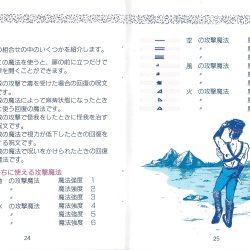 の組合せの中のいくつかを紹介します。
の魔法を使うと、扉の前に立つだけで
を開くことができます。
の攻撃で傷を負った場合の回復の呪
文です。
の魔法によって麻痺状態になったとき
に使う回復の魔法です。
の攻撃で怪我をしたときに怪我を治す
呪文です。
の魔法で視力が低下したときの回復を
する呪文です。
の魔法で呪いがかけられたときの回復
文です。
ちに使える攻撃魔法
の攻撃魔法 魔法強度 1
〃 魔法強度 2
〃 魔法強度 3
〃 魔法強度 4
〃 魔法強度 5
〃 魔法強度 6
24
空 の攻撃魔法
〃
〃
風 の攻撃魔法
〃
〃
火 の攻撃魔法
〃
〃
25